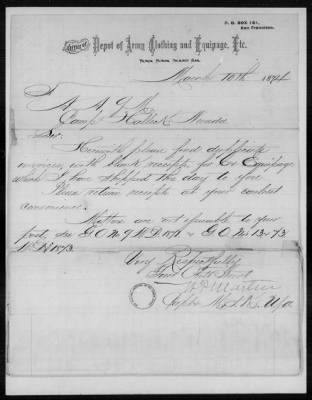 P. O. BOX 181,
San Francisco.
Office of Depot of Army Clothing and Equipage, Etc.
March 10th 1874
A. A. Q. M.
Camp Halleck Nevada
Sir:
Herewith please find duplicate
invoices, with blank receipts for C&G Equipage
which I have shipped this day to you.
Please return receipts at your earliest
convenience.
are not to your
post, see G.O. No 9 W.D. 1871 & G.O. No 13 of 73
W.D. 1873
Very Respectfully
Your Obdt Servt
Martin
M. S. K. U.S.A.